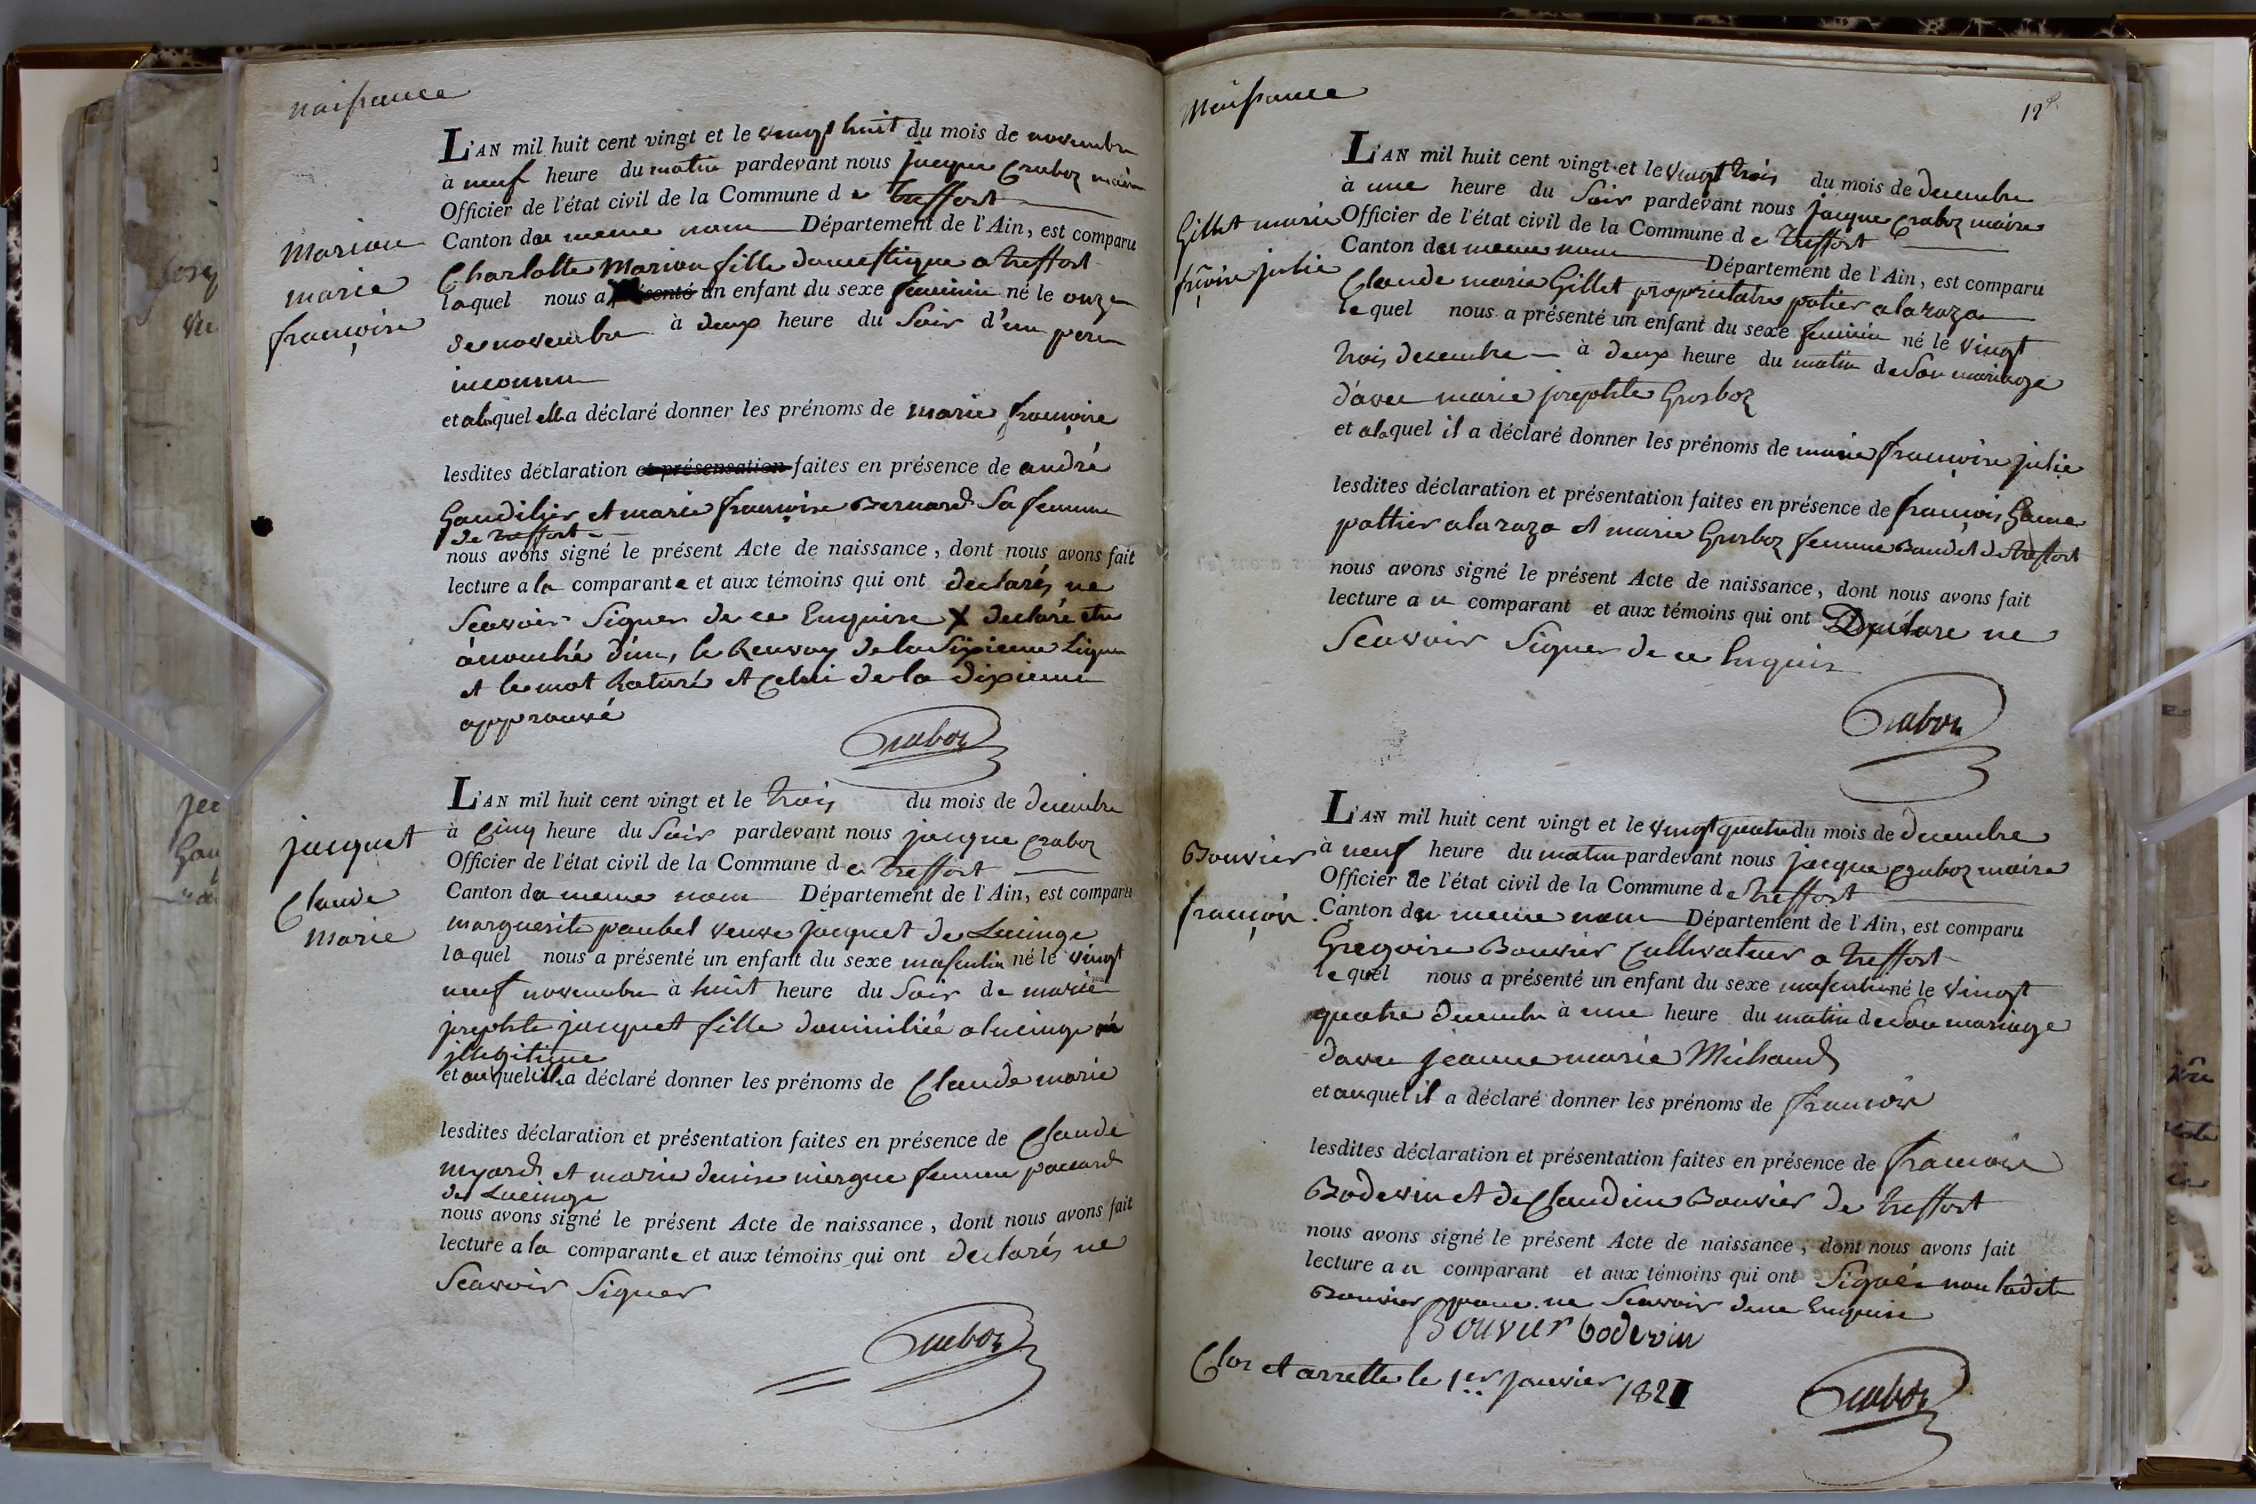 naissance
L'AN mil huit cent vingt et le vingt huit du mois de novembre
à neuf heure du matin pardevant nous jacque Craboz maire
Officier de l'état civil de la Commune de treffort
Canton du meme nom Département de l'Ain, est comparu
Charlotte Marion fille domestique a treffort
laquel nous a présenté un enfant du sexe feminin né le onze
de novembre à deux heure du Soir d'un pere
inconnu
et alaquel elle a déclaré donner les prénoms de marie françoise
lesdites déclaration et présensation faites en présence de andré
Gaudilier et marie françoise Bernard Sa femme
de treffort
nous avons signé le présent Acte de naissance, dont nous avons fait
lecture a la comparante et aux témoins qui ont declarés ne
Scavoir Signer de ce Enquire X declaré etre
acouché d'un, le Renvoy de la Sixieme Ligne
et le mot Raturé et Celui de la dixieme
approuvé
Craboz
Marion
marie
françoise
L'AN mil huit cent vingt et le trois du mois de decembre
à Cinq heure du Soir pardevant nous jacque Craboz
Officier de l'état civil de la Commune de treffort
Canton du meme nom Département de l'Ain, est comparu
marguerite paubel veuve jacquet de Lucinge
laquel nous a présenté un enfant du sexe masculin né le vingt
neuf novembre à huit heure du Soir de marie
josephte jacquet fille domiciliée a lucinge
jllegitime
et auquel elle a déclaré donner les prénoms de Claude marie
lesdites déclaration et présentation faites en présence de Claude
myard et marie denise niergue femme pauard
de Lucinge
nous avons signé le présent Acte de naissance, dont nous avons fait
lecture a la comparante et aux témoins qui ont declarés ne
Scavoir Signer
Craboz
jacquet
Claude
Marie
Naissance
12e
L'AN mil huit cent vingt et le vingt trois du mois de decembre
à une heure du Soir pardevant nous jacque Craboz maire
Officier de l'état civil de la Commune de treffort
Canton du meme nom Département de l'Ain, est comparu
Claude marie Gillet proprietaire potier a la raza
lequel nous a présenté un enfant du sexe feminin né le vingt
trois decembre à deux heure du matin de Son mariage
d'avec marie josephte Grosboz
et alaquel il a déclaré donner les prénoms de marie françoise julie
lesdites déclaration et présentation faites en présence de françois
pottier a la raza et marie Grosboz femme Baudet de treffort
nous avons signé le présent Acte de naissance, dont nous avons fait
lecture au comparant et aux témoins qui ont Declare ne
Scavoir Signer de ce Enquis
Craboz
Gillet marie
fçoise julie
L'AN mil huit cent vingt et le vingt quatre du mois de decembre
à neuf heure du matin pardevant nous jacque Craboz maire
Officier de l'état civil de la Commune de treffort
Canton du meme nom Département de l'Ain, est comparu
Gregoire Bouvier Cultivateur a treffort
lequel nous a présenté un enfant du sexe masculin né le vingt
quatre decembre à une heure du matin de Son mariage
davec jeanne marie Michaud
et auquel il a déclaré donner les prénoms de françois
lesdites déclaration et présentation faites en présence de françois
Bodevin et de Claudine Bouvier de treffort
nous avons signé le présent Acte de naissance, dont nous avons fait
lecture au comparant et aux témoins qui ont Signés non ladite
Bouvier pour ne Scavoir de ce Enquise
Bouvier bodevin
Clos et arrette le 1er janvier 1821
Craboz
Bouvier
françois